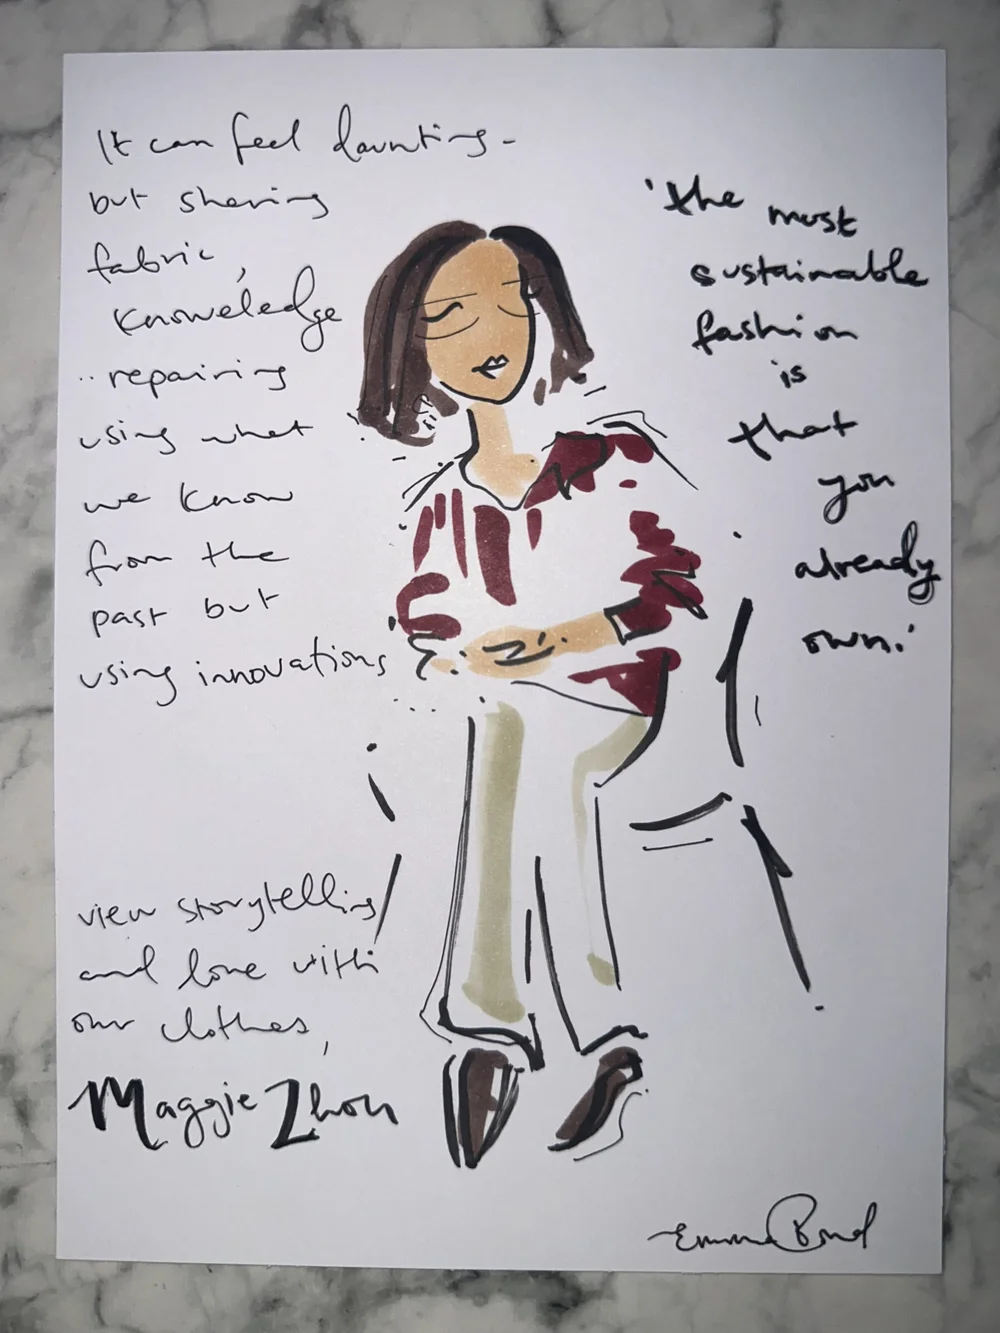 It can feel daunting -
but sharing
fabric,
knoweledge
.. repairing
using what
we know
from the
past but
using innovations
view storytelling
and love with
our clothes,
Maggie Zhou
'the most
sustainable
fashion
is
that
you
already
own.'
Emma Bond